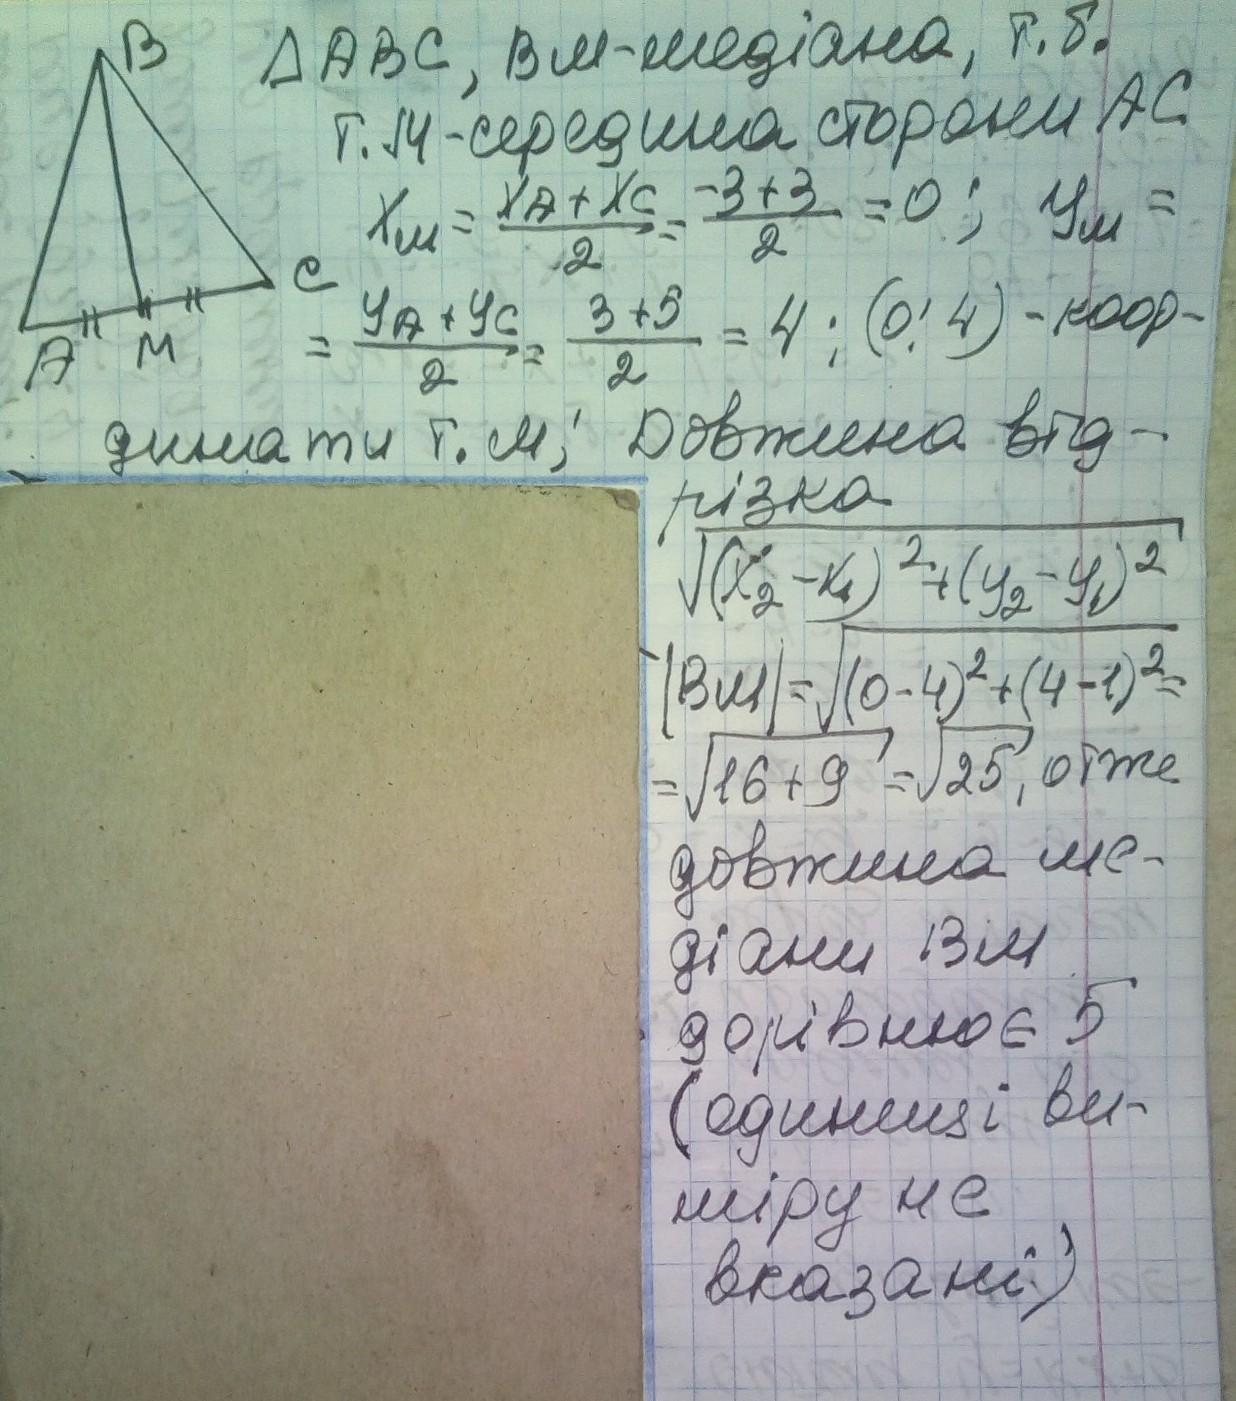 B
A
M
C
ΔABC, BM-медіана, т.б.
т.M-середина сторони AC
x_M = (x_A + x_C)/2 = (-3+3)/2 = 0; y_M =
= (y_A + y_C)/2 = (3+5)/2 = 4; (0; 4) - коор-
динати т.M; Довжина від-
різка
√((x₂-x₁)²+(y₂-y₁)²)
|BM|=√((0-4)²+(4-1)²)=
=√(16+9)=√25, отже
довжина ме-
діани BM
дорівнює 5
(одиниці ви-
міру не
вказані)